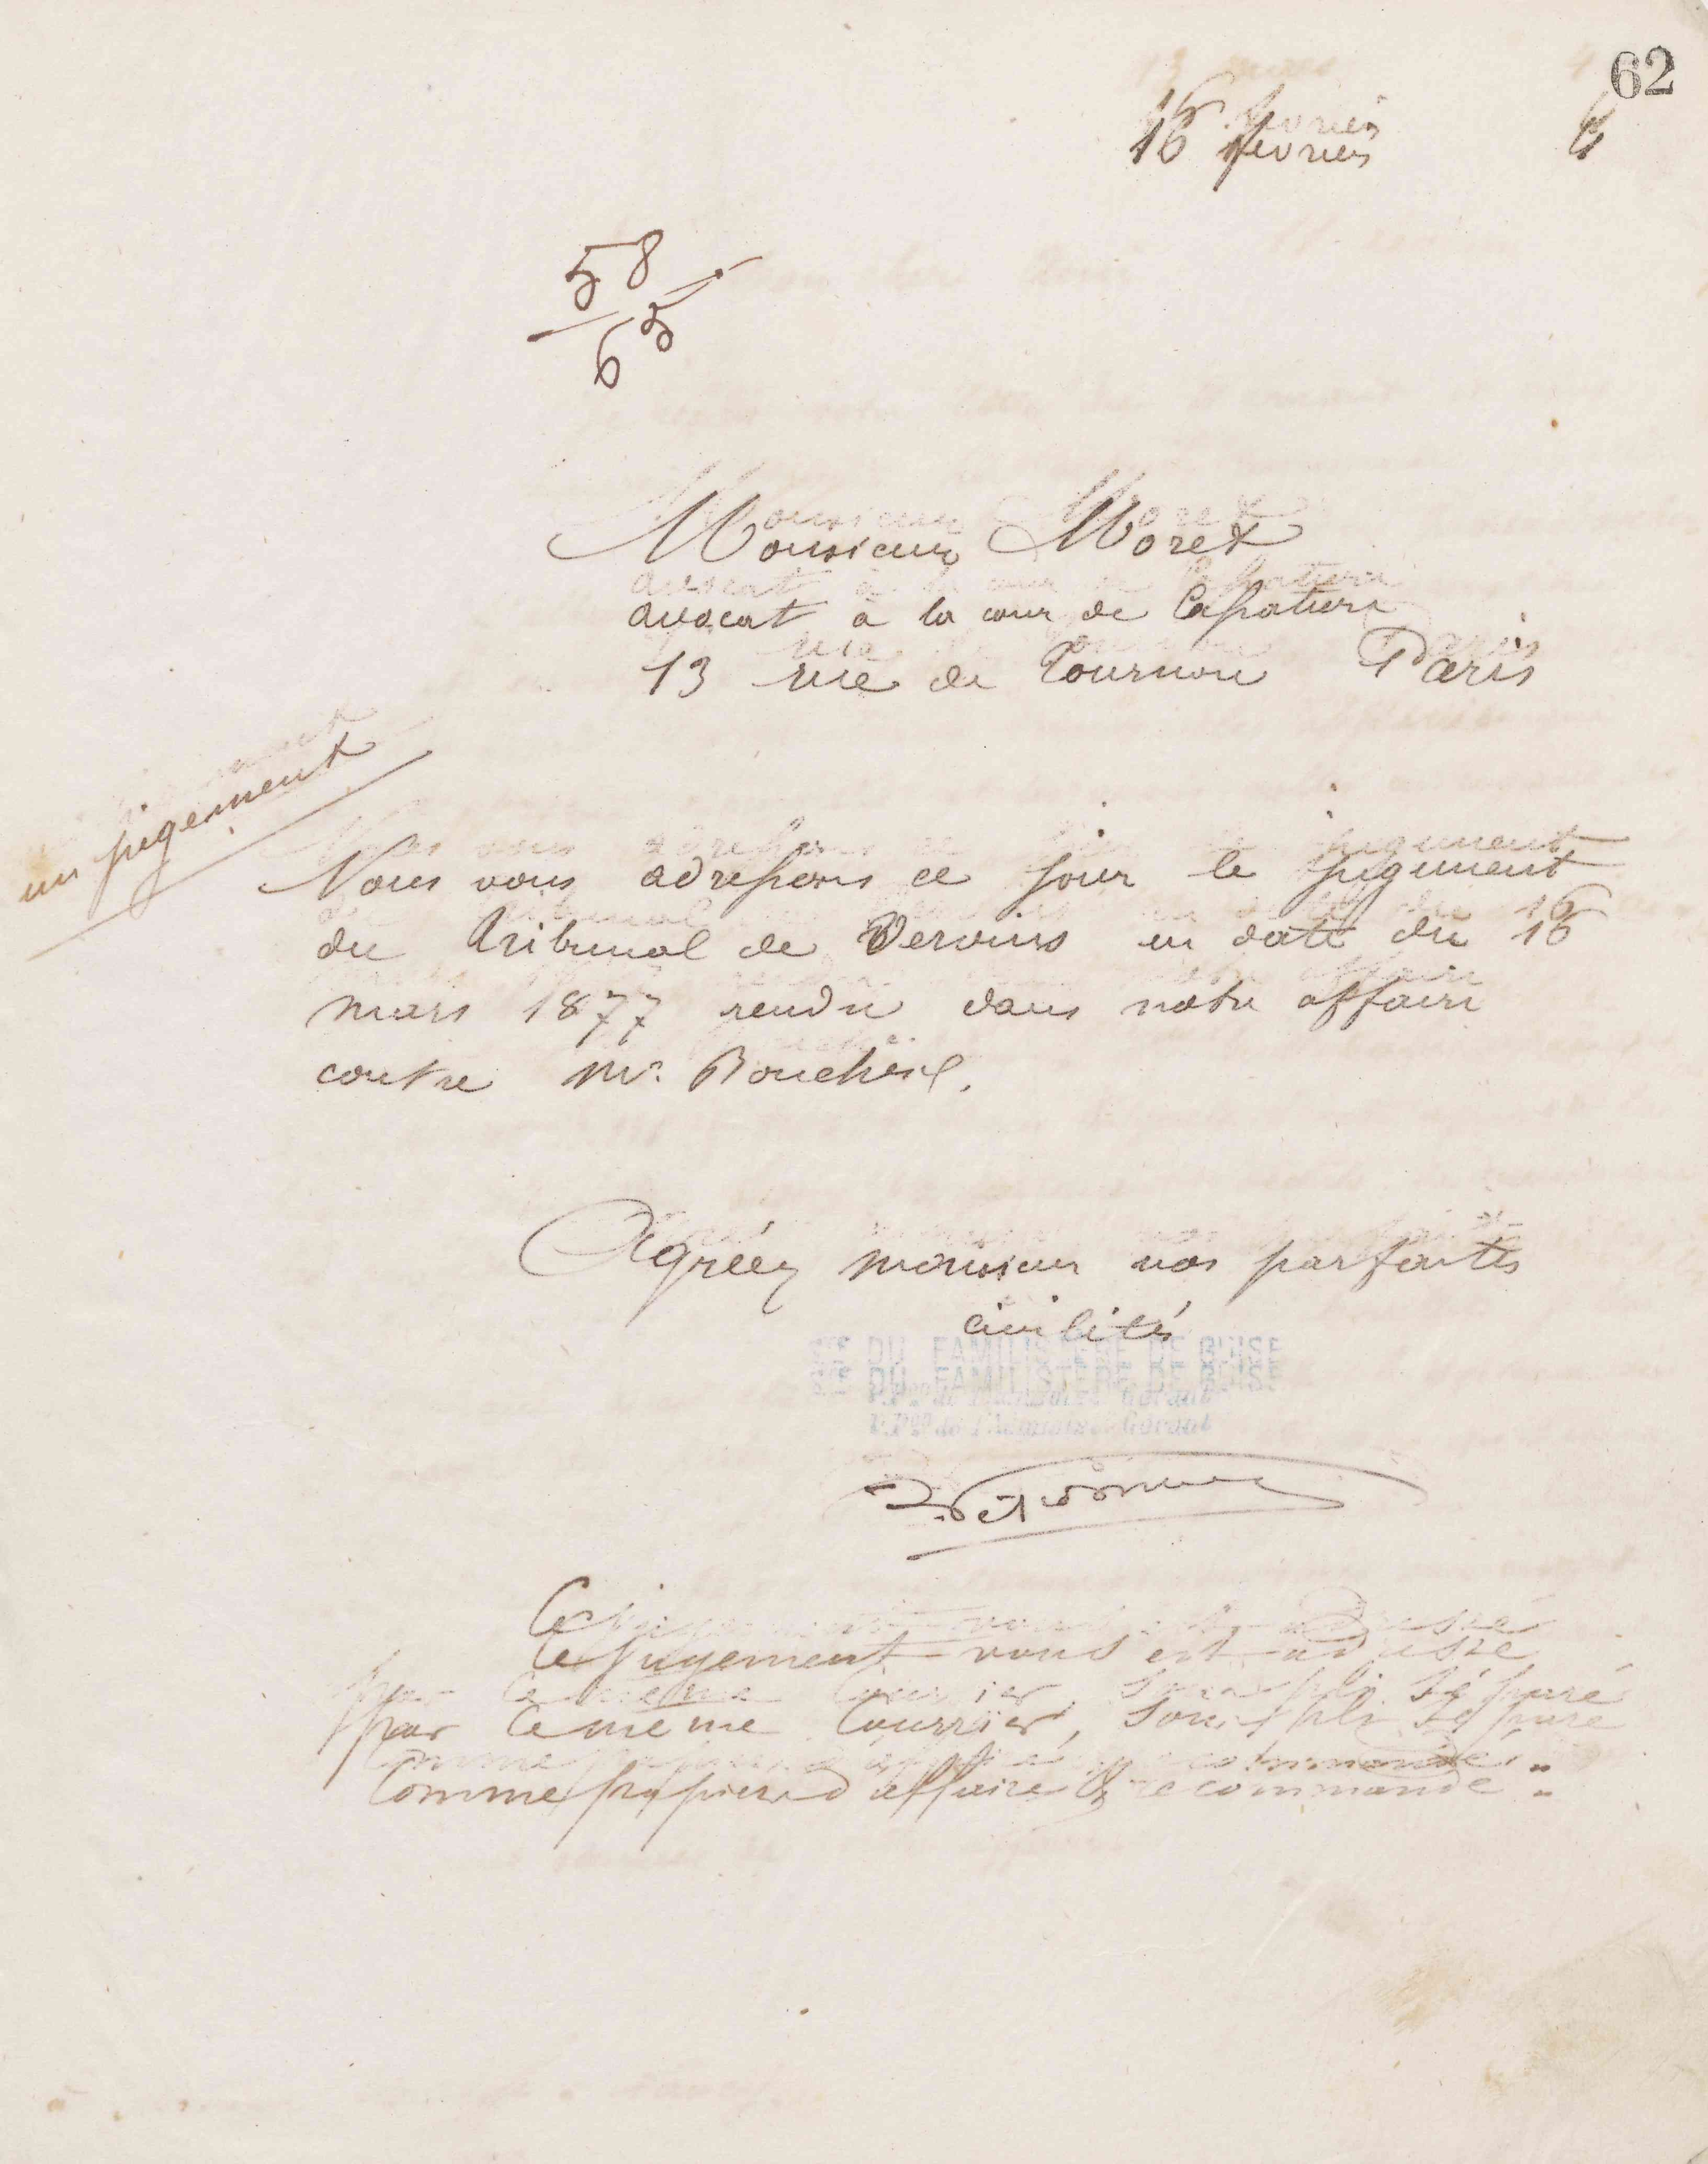 62
16 février
58
65
Monsieur Moret
avocat à la cour de Cassation
13 rue de Tournon Paris
un jugement
Nous vous adressons ce jour le jugement
du Tribunal de Vervins en date du 16
mars 1877 rendu dans notre affaire
contre Mr.
Agréez monsieur nos parfaites
civilités
Sté DU FAMILISTÈRE DE GUISE
Gérant
Ce jugement vous est adressé
par le même courrier, sous pli séparé
comme papier d'affaire & recommandé.